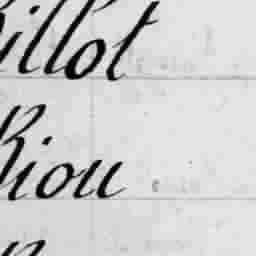 illot
Riou